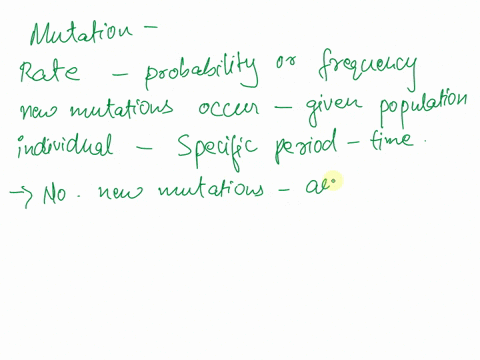 Mutation -
Rate - probability or frequency
new mutations occur - given population
individual - Specific period - time.
→ No. new mutations -